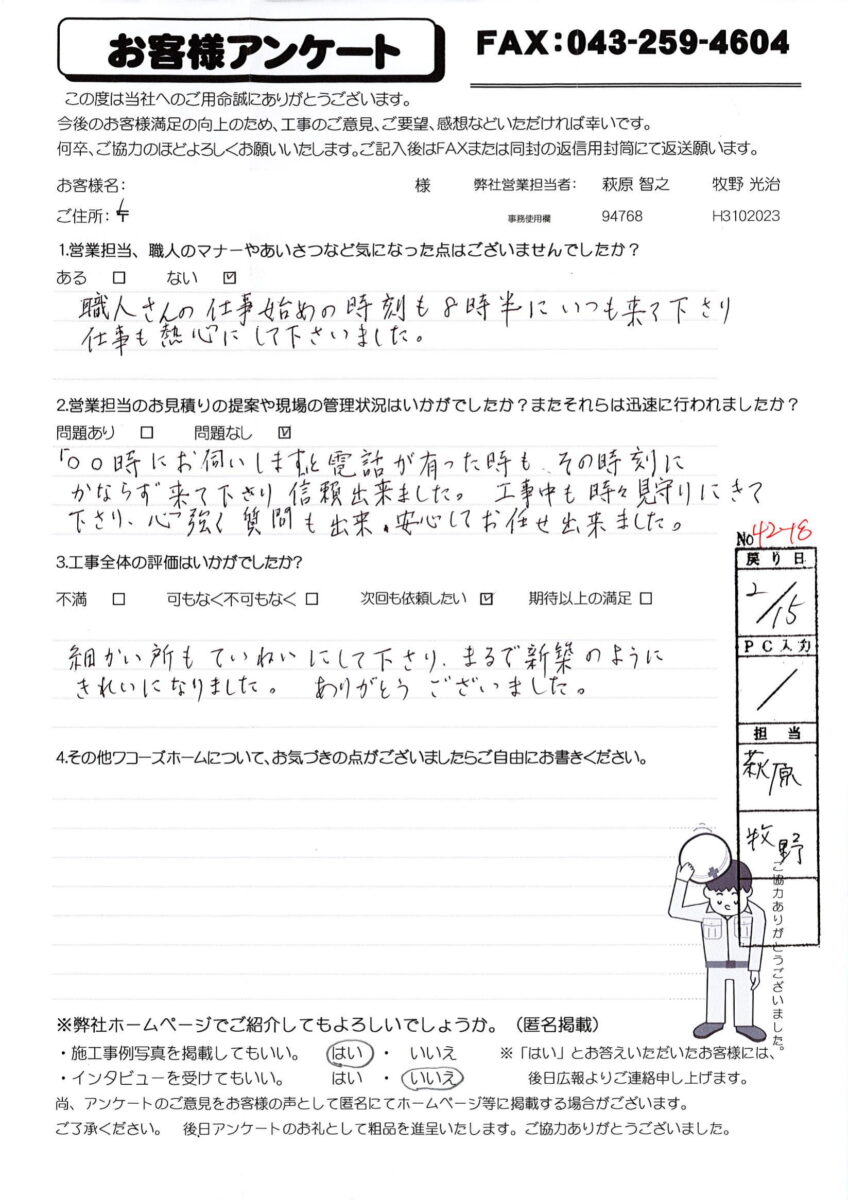 お客様アンケート
FAX:043-259-4604
この度は当社へのご用命誠にありがとうございます。
今後のお客様満足の向上のため、工事のご意見、ご要望、感想などいただければ幸いです。
何卒、ご協力のほどよろしくお願いいたします。ご記入後はFAXまたは同封の返信用封筒にて返送願います。
お客様名： 様 弊社営業担当者： 萩原 智之 牧野 光治
ご住所：〒 事務使用欄 94768 H3102023
1.営業担当、職人のマナーやあいさつなど気になった点はございませんでしたか？
ある □ ない ☑
職人さんの仕事始めの時刻も8時半にいつも来て下さり
仕事も熱心にして下さいました。
2.営業担当のお見積りの提案や現場の管理状況はいかがでしたか？またそれらは迅速に行われましたか？
問題あり □ 問題なし ☑
「○○時にお伺いします」と電話が有った時も、その時刻に
かならず来て下さり信頼出来ました。工事中も時々見守りにきて
下さり、心強く質問も出来、安心してお任せ出来ました。
3.工事全体の評価はいかがでしたか?
不満 □ 可もなく不可もなく □ 次回も依頼したい ☑ 期待以上の満足 □
細かい所もていねいにして下さり、まるで新築のように
きれいになりました。ありがとうございました。
4.その他ワコーズホームについて、お気づきの点がございましたらご自由にお書きください。
No 42-18
戻り日
2/15
PC入力
/
担当
萩原
牧野
ご協力ありがとうございました。
※弊社ホームページでご紹介してもよろしいでしょうか。（匿名掲載）
・施工事例写真を掲載してもいい。 はい ・ いいえ ※「はい」とお答えいただいたお客様には、
・インタビューを受けてもいい。 はい ・ いいえ 後日広報よりご連絡申し上げます。
尚、アンケートのご意見をお客様の声として匿名にてホームページ等に掲載する場合がございます。
ご了承ください。 後日アンケートのお礼として粗品を進呈いたします。ご協力ありがとうございました。